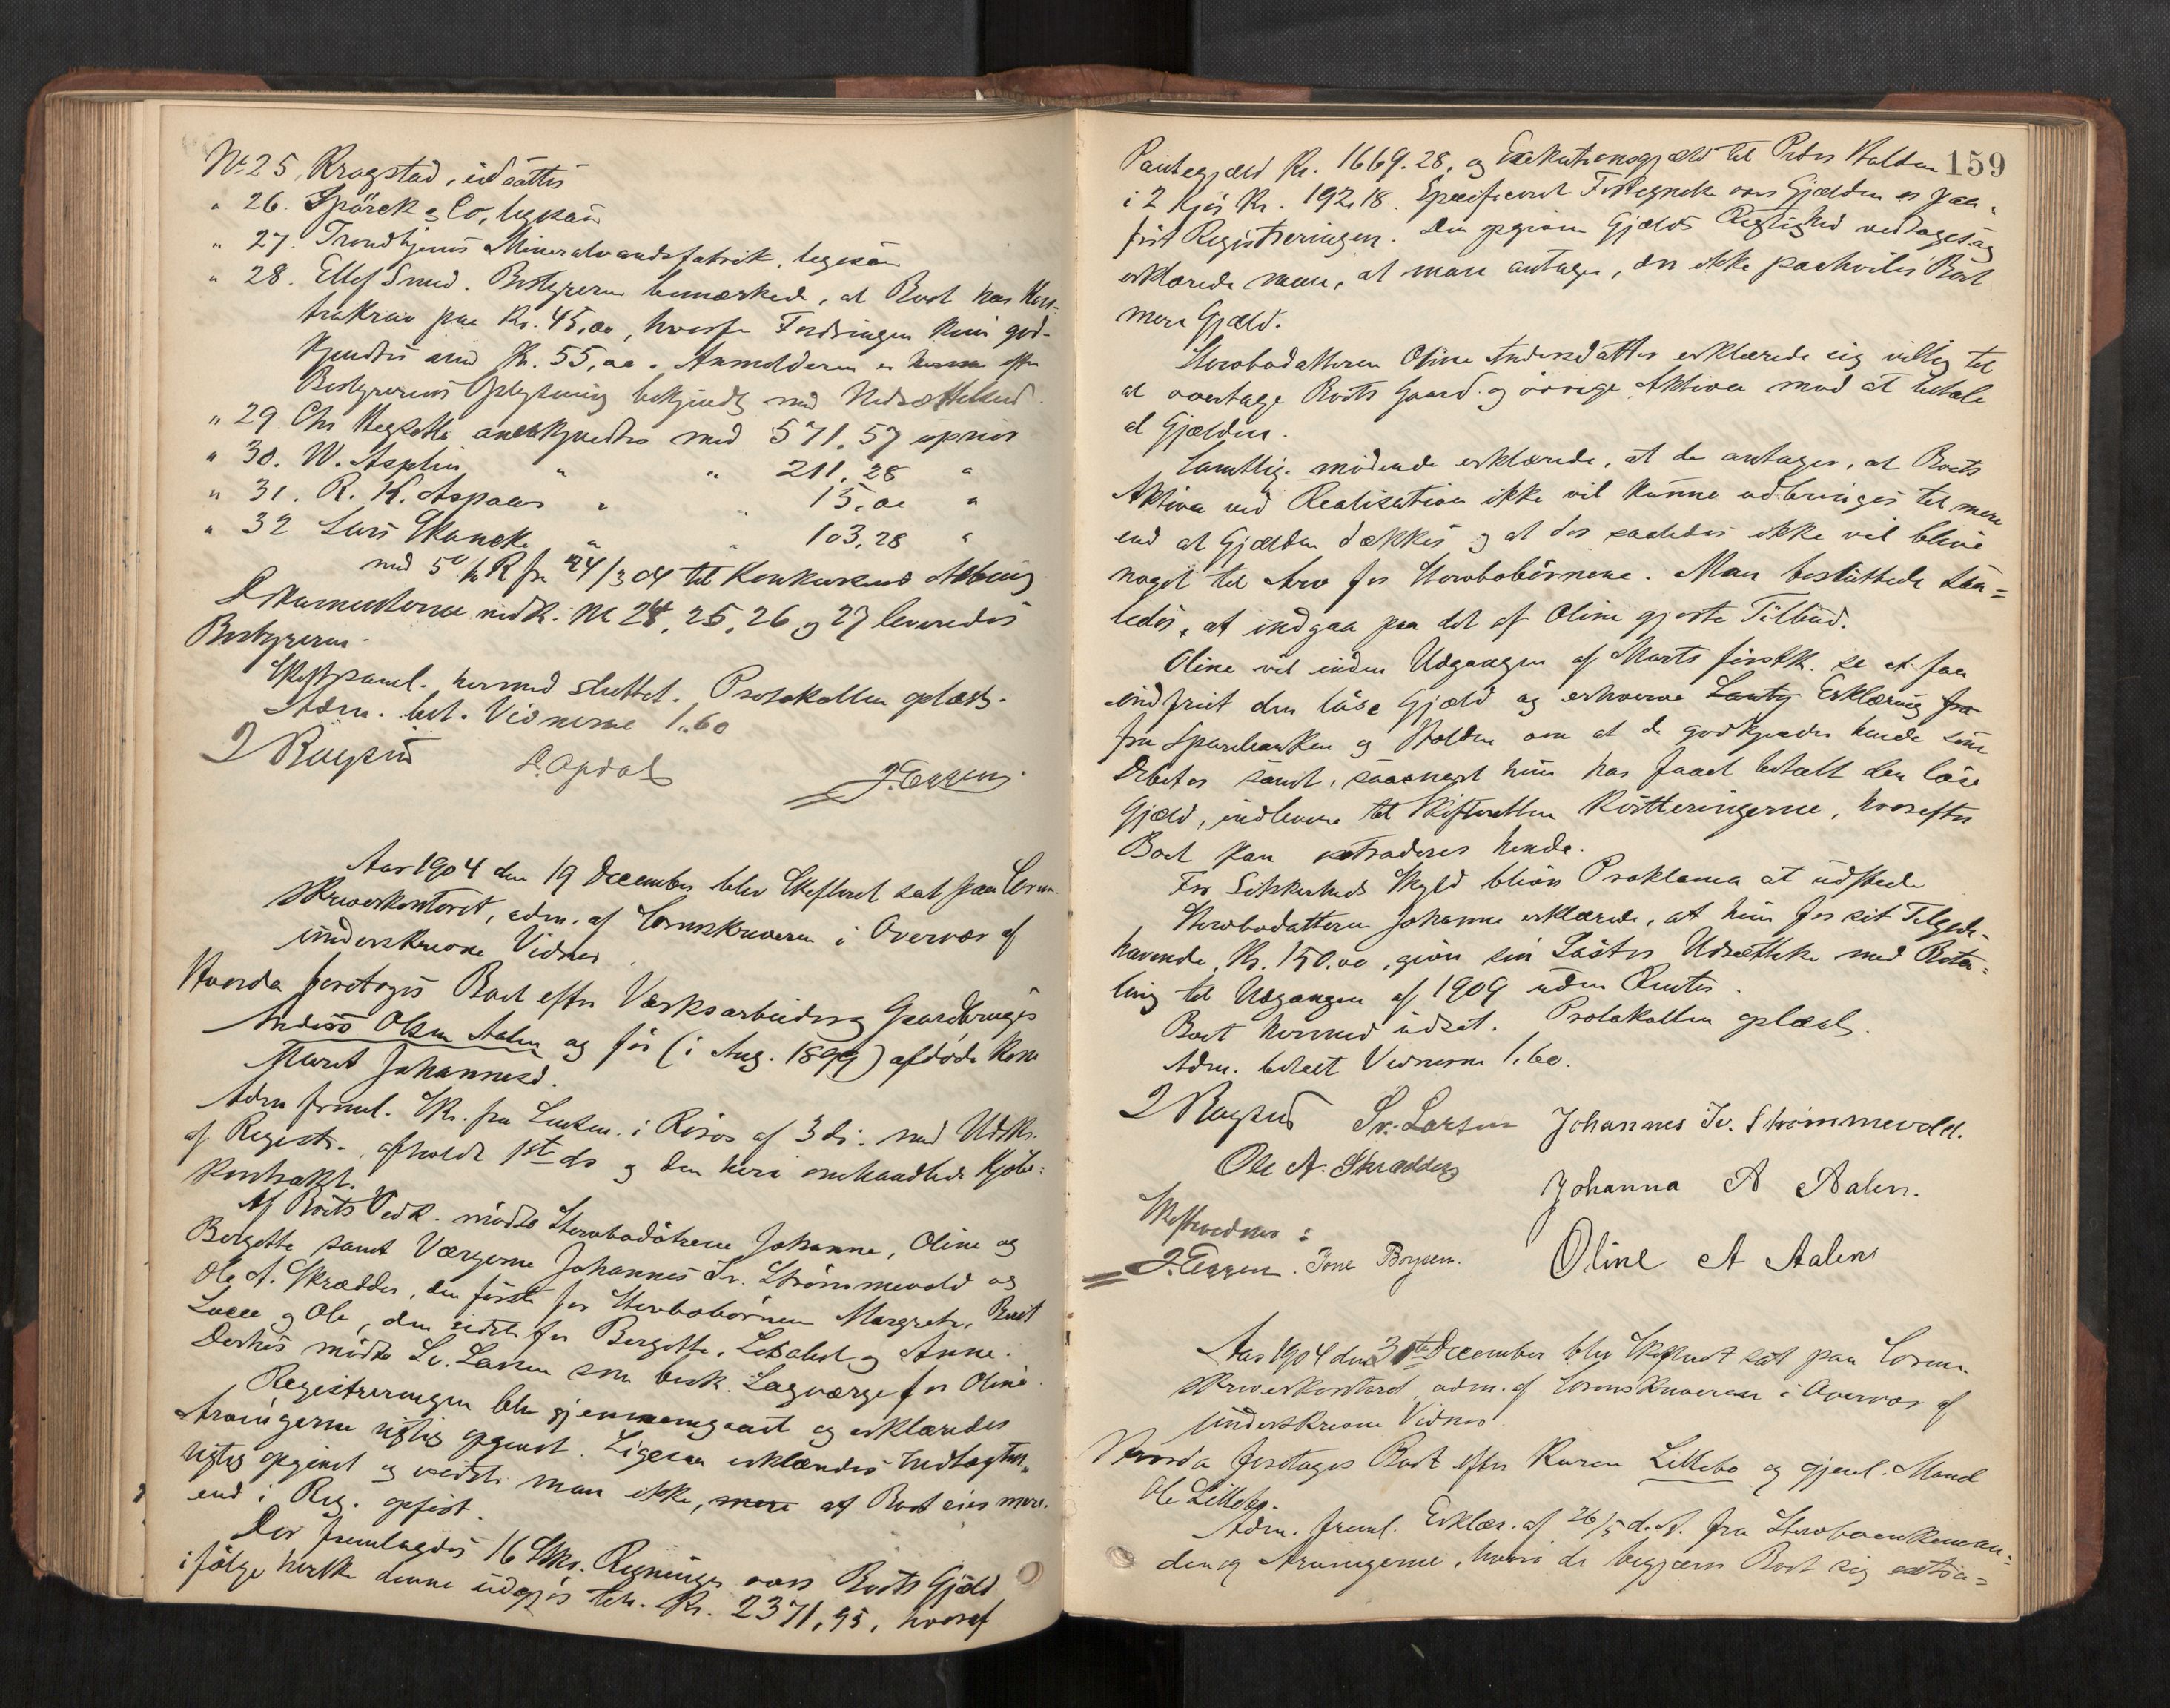 No 25, Kragstad, udsattes
" 26. Spärck & Co, ligesaa
" 27. Trondhjems Mineralvandsfabrik, ligesaa
" 28. Ellef Smed. Bestyreren bemærkede, at Boet har
krav paa Kr. 45,00, hvorfor Fordringen kun god-
kjendtes med Kr. 55,00. Anmelderen er efter
Bestyrerens Oplysning bekjendt med Nedsættelsen.
" 29. Chr anerkjendtes med 571.57 uprior
" 30. W. Asplin " " 211.28 "
" 31. R. K. Aspaas " " 15.00 "
" 32 Lars Skancke " " 103.28 "
med 5% R fra 24/3 04 til Konkursens Aabning
Dokumenterne vedk. No 24, 25, 26 og 27 leveredes
Bestyreren.
Skiftesaml. hermed sluttet. Protokollen oplæst.
Adm. bet. Vidnerne 1.60
Aar 1904 den 19 December blev Skifteret sat paa Soren-
skriverkontoret, adm. af Sorenskriveren i Overvær af
underskrevne Vidner
Hvorda foretoges Boet efter Værksarbeider og Gaardbruger
Anders Olsen Aalen og før (i Aug. 1899) afdøde Kone
Marit Johannesd.
Adm freml. Skr. fra Lensm. i Röros af 3 di. med Udskr.
af Registr. afholdt 1st ds og den heri omhandlede Kjöbe-
kontrakt.
Af Boets Vedk. mødte Sterbodøtrene Johanne, Oline og
Bergitte samt Værgerne Johannes Iv. Strömmevold og
Ole A. Skrædder, den første for Sterbobørnene Margrete, Berit
og Ole, den sidste for Bergitte, og Anne.
Derhos mødte Sv. Larsen som besk. Lagværge for Oline.
Registreringen blev gjennemgaaet og erklæredes
Arvingerne rigtig opgivet. Ligesaa erklæredes Indtægten
rigtig opgivet og vidste man ikke, mere at Boet eier mere
end i Reg. opført.
Der fremlagdes 16 Stkr. Regninger over Boets Gjæld
ifølge hvilke denne udgjør tils. Kr. 2371,95, hvoraf
159
Pantegjæld Kr. 1669.28, og Exekutionsgjæld til Peder Holden
i 2 Kjör Kr. 192.18. Specificeret Fortegnelse over Gjælden er paa-
ført Registreringen. Den opgivne Gjælds Rigtighed vedtoges og
erklærede man, at man antager, der ikke paahviler Boet
mere Gjæld.
Sterbodatteren Oline Andersdatter erklærede sig villig til
at overtage Boets Gaard og øvrige Aktiva mod at betale
al Gjælden.
Samtlige mødende erklærede, at de antager, at Boets
Aktiva ved Realisation ikke vil kunne udbringes til mere
end at Gjælden dækkes og at der saaledes ikke vil blive
noget til Arv for Sterbobörnene. Man besluttede saa-
ledes, at indgaa paa det af Oline gjorte Tilbud.
Oline vil inden Udgangen af Marts förstk. se at faa
indfriet den löse Gjæld og erhverve Erklæring fra
fra Sparebanken og Holden om at de godkjender hende som
Debitor samt, saasnart hun har faaet betalt den löse
Gjæld, indlevere til Skifteretten Kvitteringerne, hvorefter
Boet kan extraderes hende.
For Sikkerheds Skyld bliver Proklama at udstede
Sterbodatteren Johanne erklærede, at hun for sit Tilgode-
havende Kr. 150.00, giver sin Söster Udsættelse med Beta-
ling til Udgangen af 1909 uden Renter.
Boet hermed udsat. Protokollen oplæst.
Adm. betalt Vidnerne 1.60.
Sv. Larsen Johannes Iv. Strömmevold.
Ole A. Skrædder Johanna A Aalen.
Skiftevidner:
Oline A Aalen
Aar 1904 den 30te December blev Skifteret sat paa Soren-
skriverkontoret, adm. af Sorenskriveren i Overvær af
underskrevne Vidner.
Hvorda foretoges Boet efter Karen Lillebo og gjenl. Mand
Ole Lillebo.
Adm. freml. Erklær. af 26/5 d. A. fra Sterboenkeman-
den og Arvingerne, hvori de begjærer Boet sig extra-